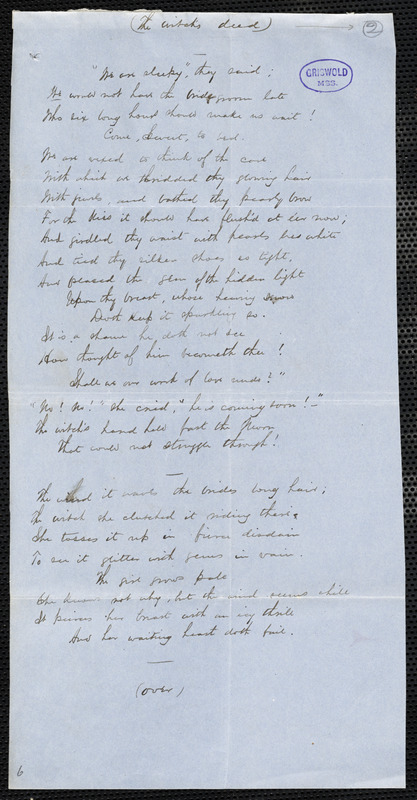 (The witch's deed) 2
"We are sleepy", they said;
GRISWOLD
MSS.
We would not have the bridegroom late
Who six long hours should make us wait!
Come, sweet, to bed.
We are vexed to think of the care
With which we thridded thy glowing hair
With pearls, and bathed thy pearly brow
For the kiss it should have flush'd at ere now;
And girdled thy waist with pearls white
And tied thy silken shoes so tight,
And placed the gem of the hidden light
Upon thy breast, whose heaving snow
Doth keep it sparkling so.
It is a shame he doth not see
How thought of him becometh thee!
Shall we our work of love undo?"
"No! No!" she cried, "he is coming soon!—"
The witch's hand held fast the Moon
That could not struggle through!
The wind it waves the brides long hair;
The witch she clutched it riding there.
She tosses it up in fierce disdain
To see it glitter with gems in vain.
The girl grows pale
She knows not why, but the wind seems chill
It pierces her breast with an icy thrill
And her waiting heart doth fail.
(over)
6